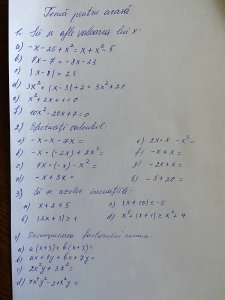 Temă pentru acasă
1. Să se afle valoarea lui x:
a) -x-25+x²=x+x²-5
b) 7x-7=-8x-23
c) |x-8|=23
d) 3x²+(x-3)+2=3x²+2x
e) x²+2x+1=0
f) 10x²-20x+7=0
2. Efectuați calculul:
a) -x-x-7x= e) 2x·x-x²=
b) -x·(-2x)+2x²= f) -x+x=
c) 7x·(-x)-x²= g) -2x+x=
d) -x+3x= h) -5+20=
3) Să se rezolve inecuațiile:
a) x+2≤5 c) |x+10|≥-5
b) |2x+3|≥1 d) x²+(x+1)≥x²+4
4) Descompunerea factorului comun.
a) a(x+3)+b(x+3)=
b) ax+7y+bx+7y=
c) 2x²y+3x²=
d) x²y²-2x²y=